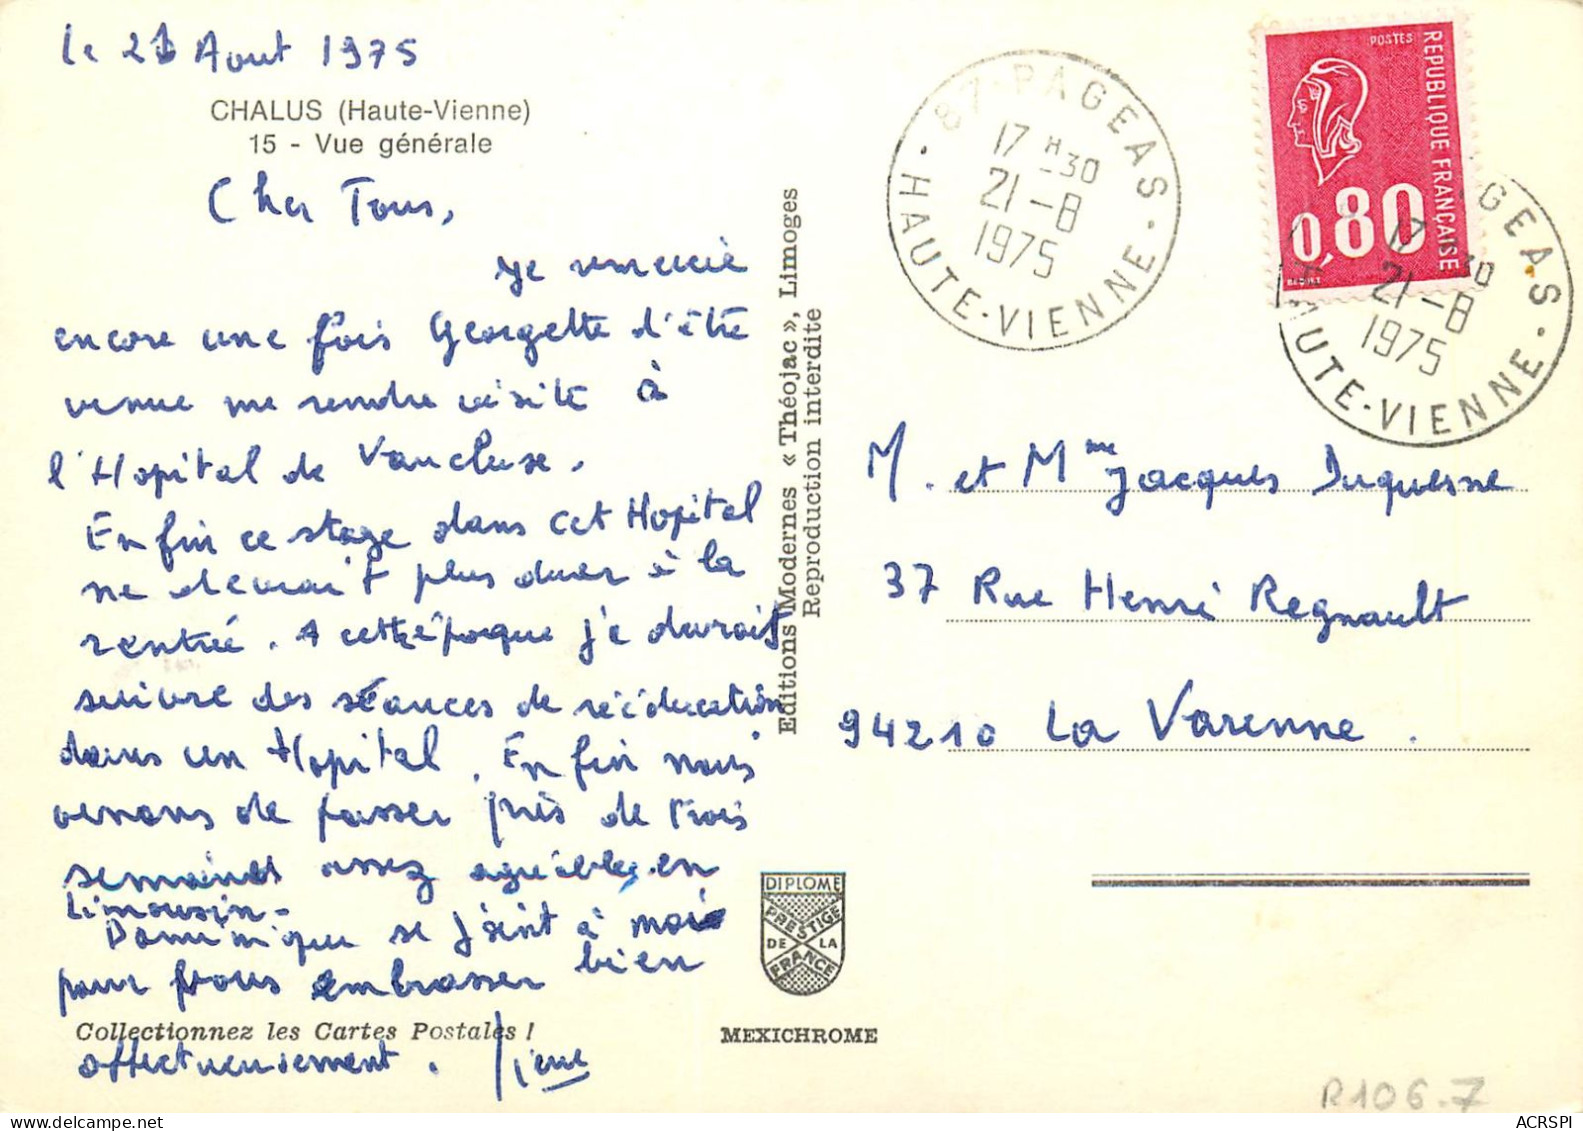 le 21 Aout 1975
CHALUS (Haute-Vienne)
15 - Vue générale
Cher Tous,
Je remercie
encore une fois Georgette d'être
venue me rendre visite à
l'Hopital de Vaucluse.
Enfin ce stage dans cet Hopital
ne devrait plus durer à la
rentrée. A cette époque je devrais
suivre des séances de rééducation
dans un Hopital. Enfin nous
venons de passer près de trois
semaines assez agréables en
Limousin -
Dominique se joint à moi
pour vous embrasser bien
Collectionnez les Cartes Postales !
affectueusement. Pierre
Editions Modernes « Théojac », Limoges
Reproduction interdite
DIPLOME
PRESTIGE
DE LA
FRANCE
MEXICHROME
87 - PAGEAS
17 H 30
21 - 8
1975
HAUTE-VIENNE
POSTES
REPUBLIQUE FRANÇAISE
0,80
BEQUET
GEAS
17 30
21 - 8
1975
HAUTE-VIENNE
M. et Mme Jacques Duquesne
37 Rue Henri Regnault
94210 La Varenne.
R106.7
ACRSPI